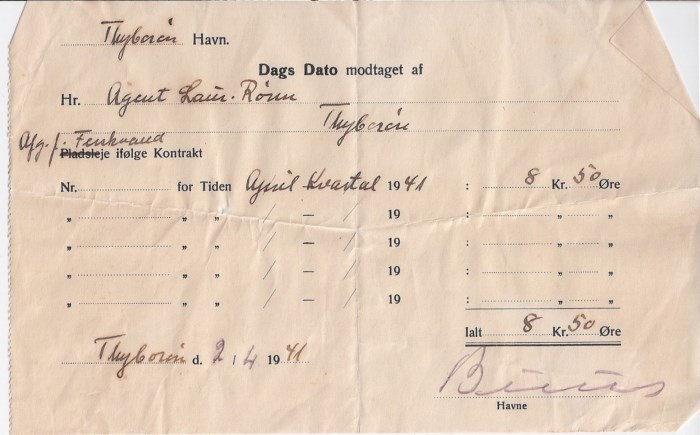 Thyborön Havn.
Dags Dato modtaget af
Hr. Agent Laur. Rönn
Thyborön
Afg. f. Ferskvand
Pladsleje ifølge Kontrakt
Nr. for Tiden April Kvartal 1941 : 8 Kr. 50 Øre
„ „ „ / — / 19 : „ „
„ „ „ / — / 19 : „ „
„ „ „ / — / 19 : „ „
„ „ „ / — / 19 : „ „
Ialt 8 Kr. 50 Øre
Thyborön d. 2 / 4 1941
Havne